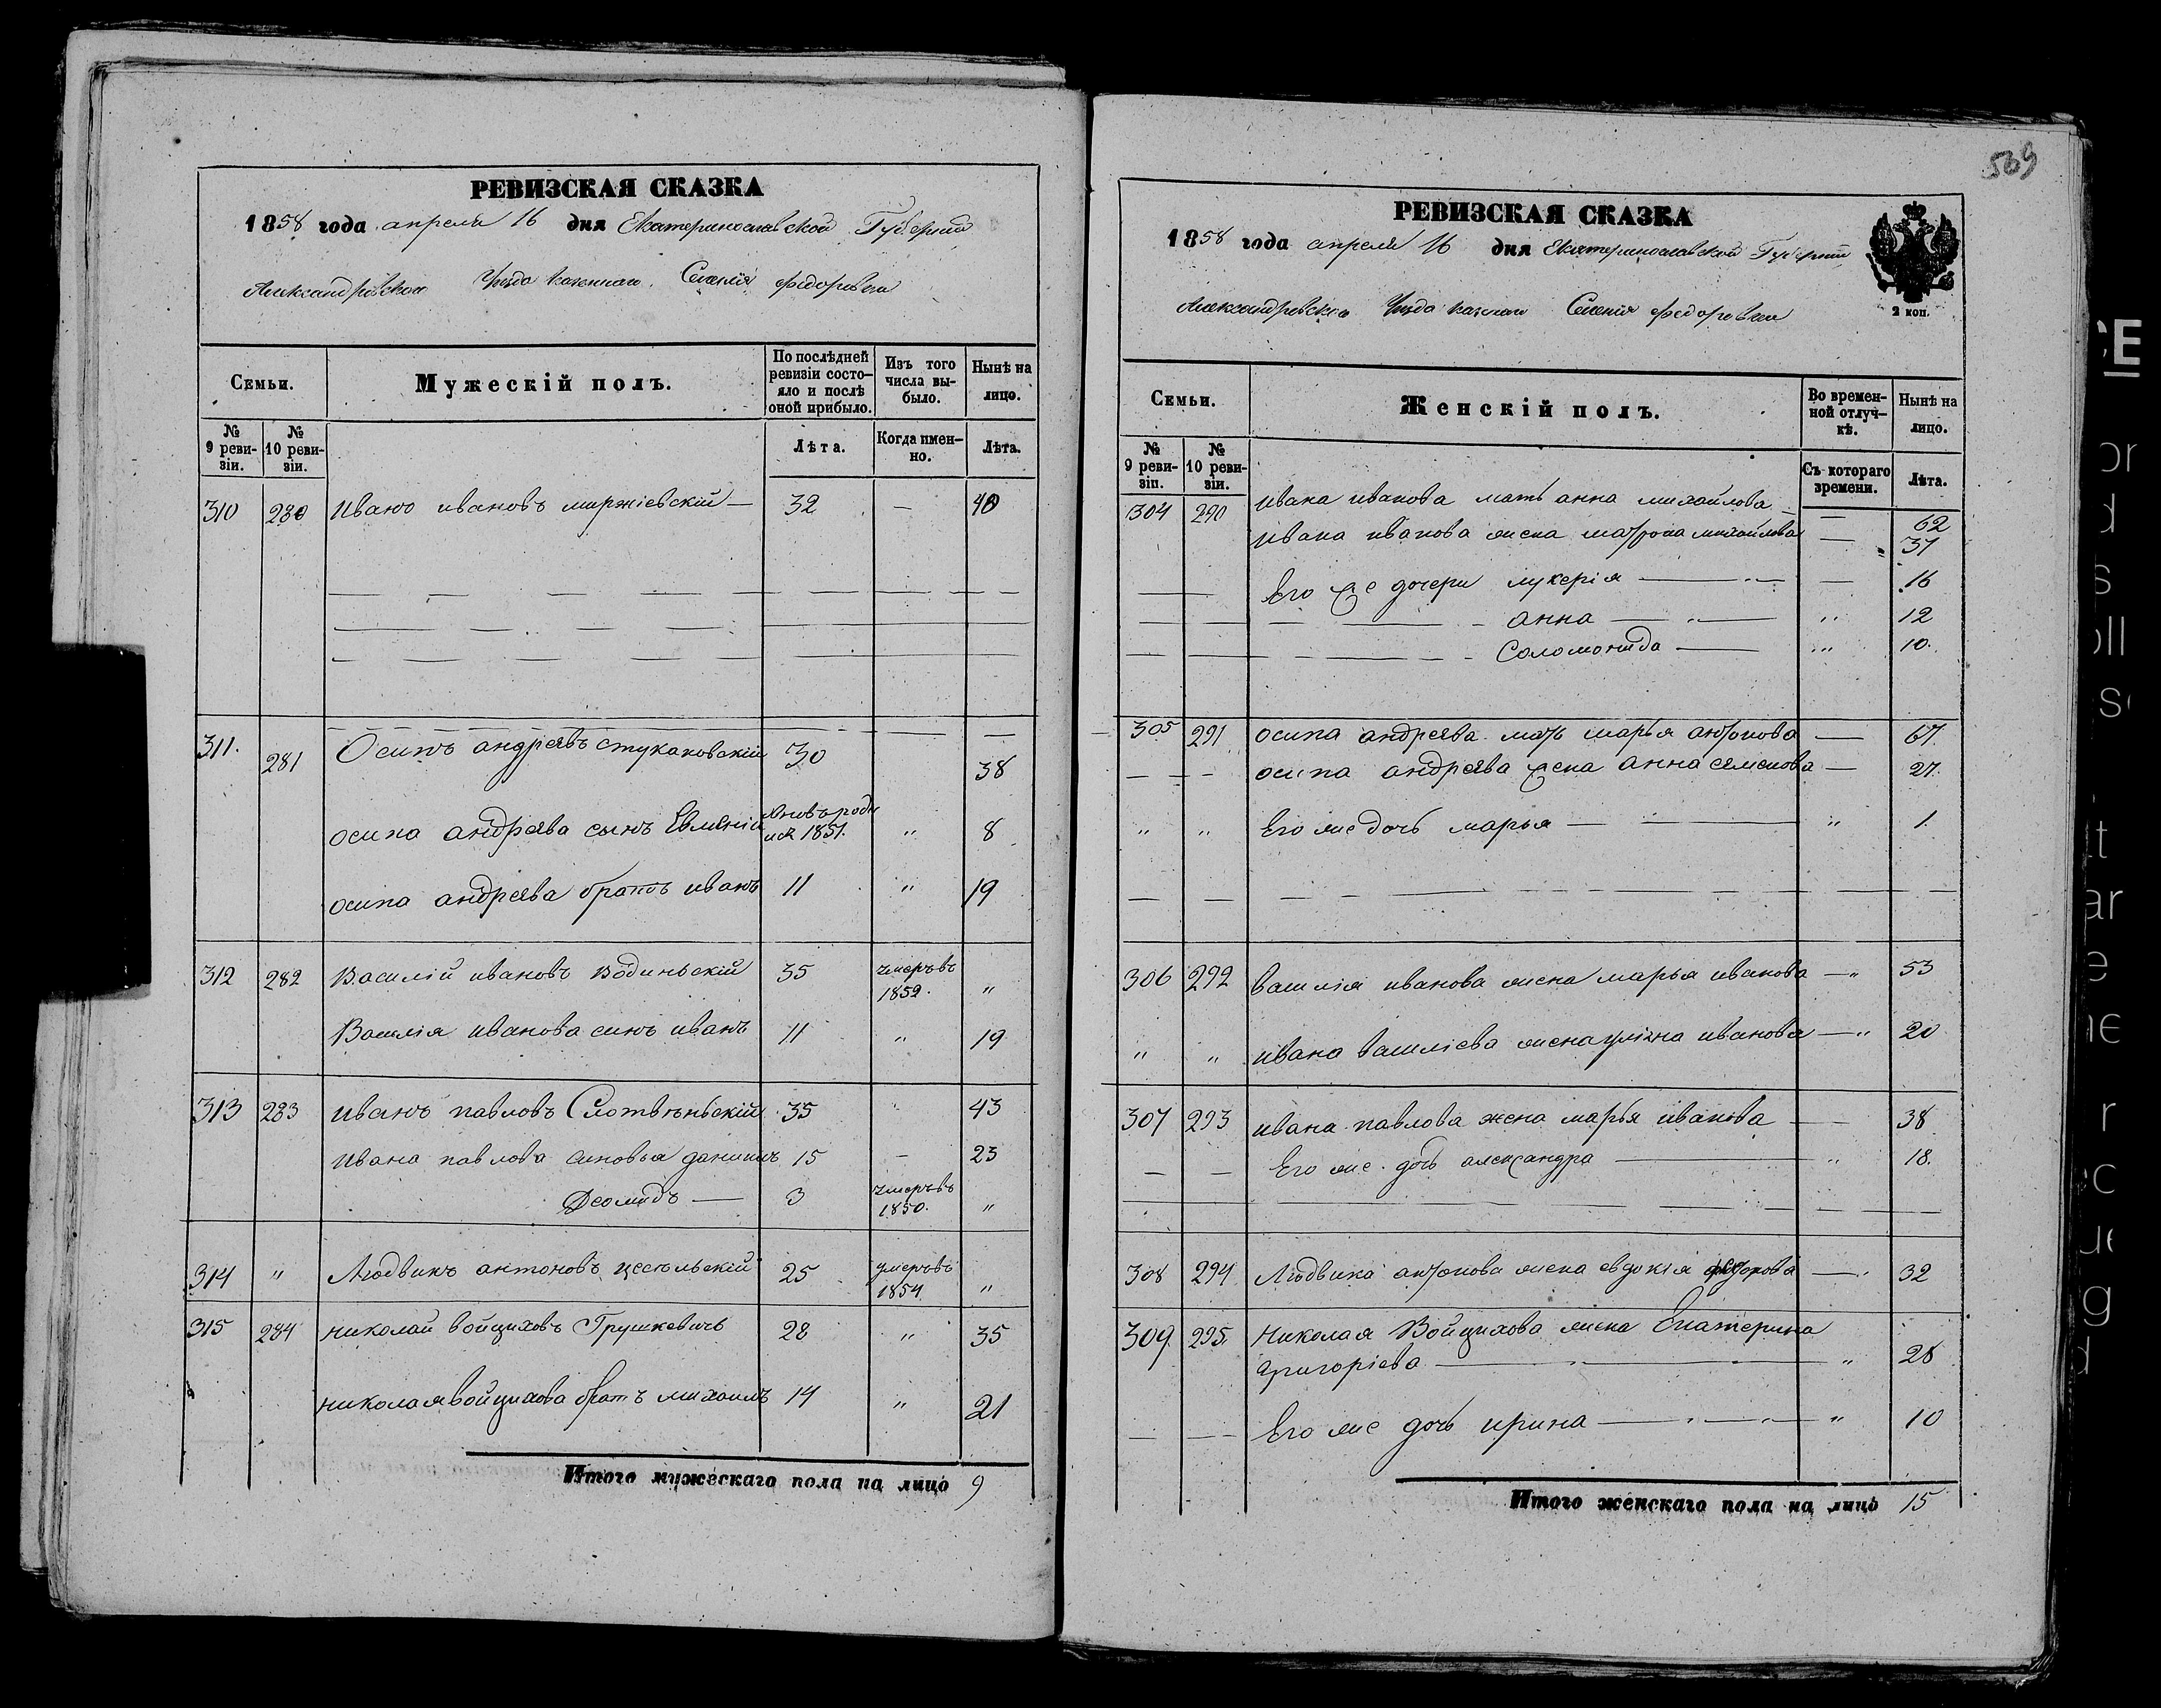 569
РЕВИЗСКАЯ СКАЗКА
1858 года апреля 16 дня Екатеринославской Губернии
Александровскаго Уезда казеннаго Селенія Федоровки
Семьи.
Мужескій полъ.
По послѣдней ревизіи состо-
яло и послѣ
оной прибыло.
Изъ того
числа вы-
было.
Нынѣ на
лицо.
№
9 реви-
зіи.
№
10 реви-
зіи.
Лѣта.
Когда имен-
но.
Лѣта.
310 280 Иванъ ивановъ миржіевскій — 32 — 40
311. 281 Осипъ андреевъ стукаковскій 30 38
осипа андреева сынъ Евменій вновь роди
лся 1851. " 8
осипа андреева братъ иванъ 11 " 19
312 282 Василій ивановъ водинскій 35 умеръ въ
1852. "
Василія иванова синъ иванъ 11 " 19
313 283 иванъ павловъ 35 " 43
Ивана павлова синовья даниилъ 15 — 23
Деомидъ — 3 умеръ въ
1850. "
314 " Людвикъ антоновъ цесельскій 25 умеръ въ
1854 "
315 284 николай войциховъ Грушкевичъ 28 " 35
николая войцихова братъ михаилъ 14 " 21
Итого мужескаго пола на лицо 9
РЕВИЗСКАЯ СКАЗКА
1858 года апреля 16 дня Екатеринославской Губерніи
Александровскаго Уезда казеннаго Селенія Федоровки
2 коп.
Семьи.
Женскій полъ.
Во времен-
ной отлуч-
кѣ.
Нынѣ на
лицо.
№
9 реви-
зіи.
№
10 реви-
зіи.
Съ котораго
времени.
Лѣта.
304 290 ивана иванова мать анна михайлова — 62
ивана иванова жена матрона михайлова — 37
Его же дочери лукерія — — 16
анна — " 12
Соломонида — " 10.
305 291 осипа андреева мать марья антонова — 67.
осипа андреева жена анна семенова — 27.
" " Его же дочь марья — " 1.
306 292 Василія иванова жена марья иванова — " 53
" " ивана василіева жена уліяна иванова — " 20
307 293 ивана павлова жена марья иванова — 38
Его же дочь александра — " 18.
308 294 Людвика антонова жена евдокія федорова — " 32
309 295. Николая Войцихова жена Екатерина
григоріева — " 28
Его же дочь ирина — " 10
Итого женскаго пола на лицо 15